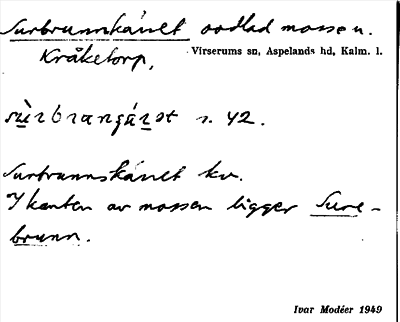 Surbrunnskärret oodlad mosse n.
Kråketorp, Virserums sn, Aspelands hd, Kalm. l.
s. 42.
Surbrunnskärret kv.
I kanten av mossen ligger Sure-
brunn.
Ivar Modéer 1949